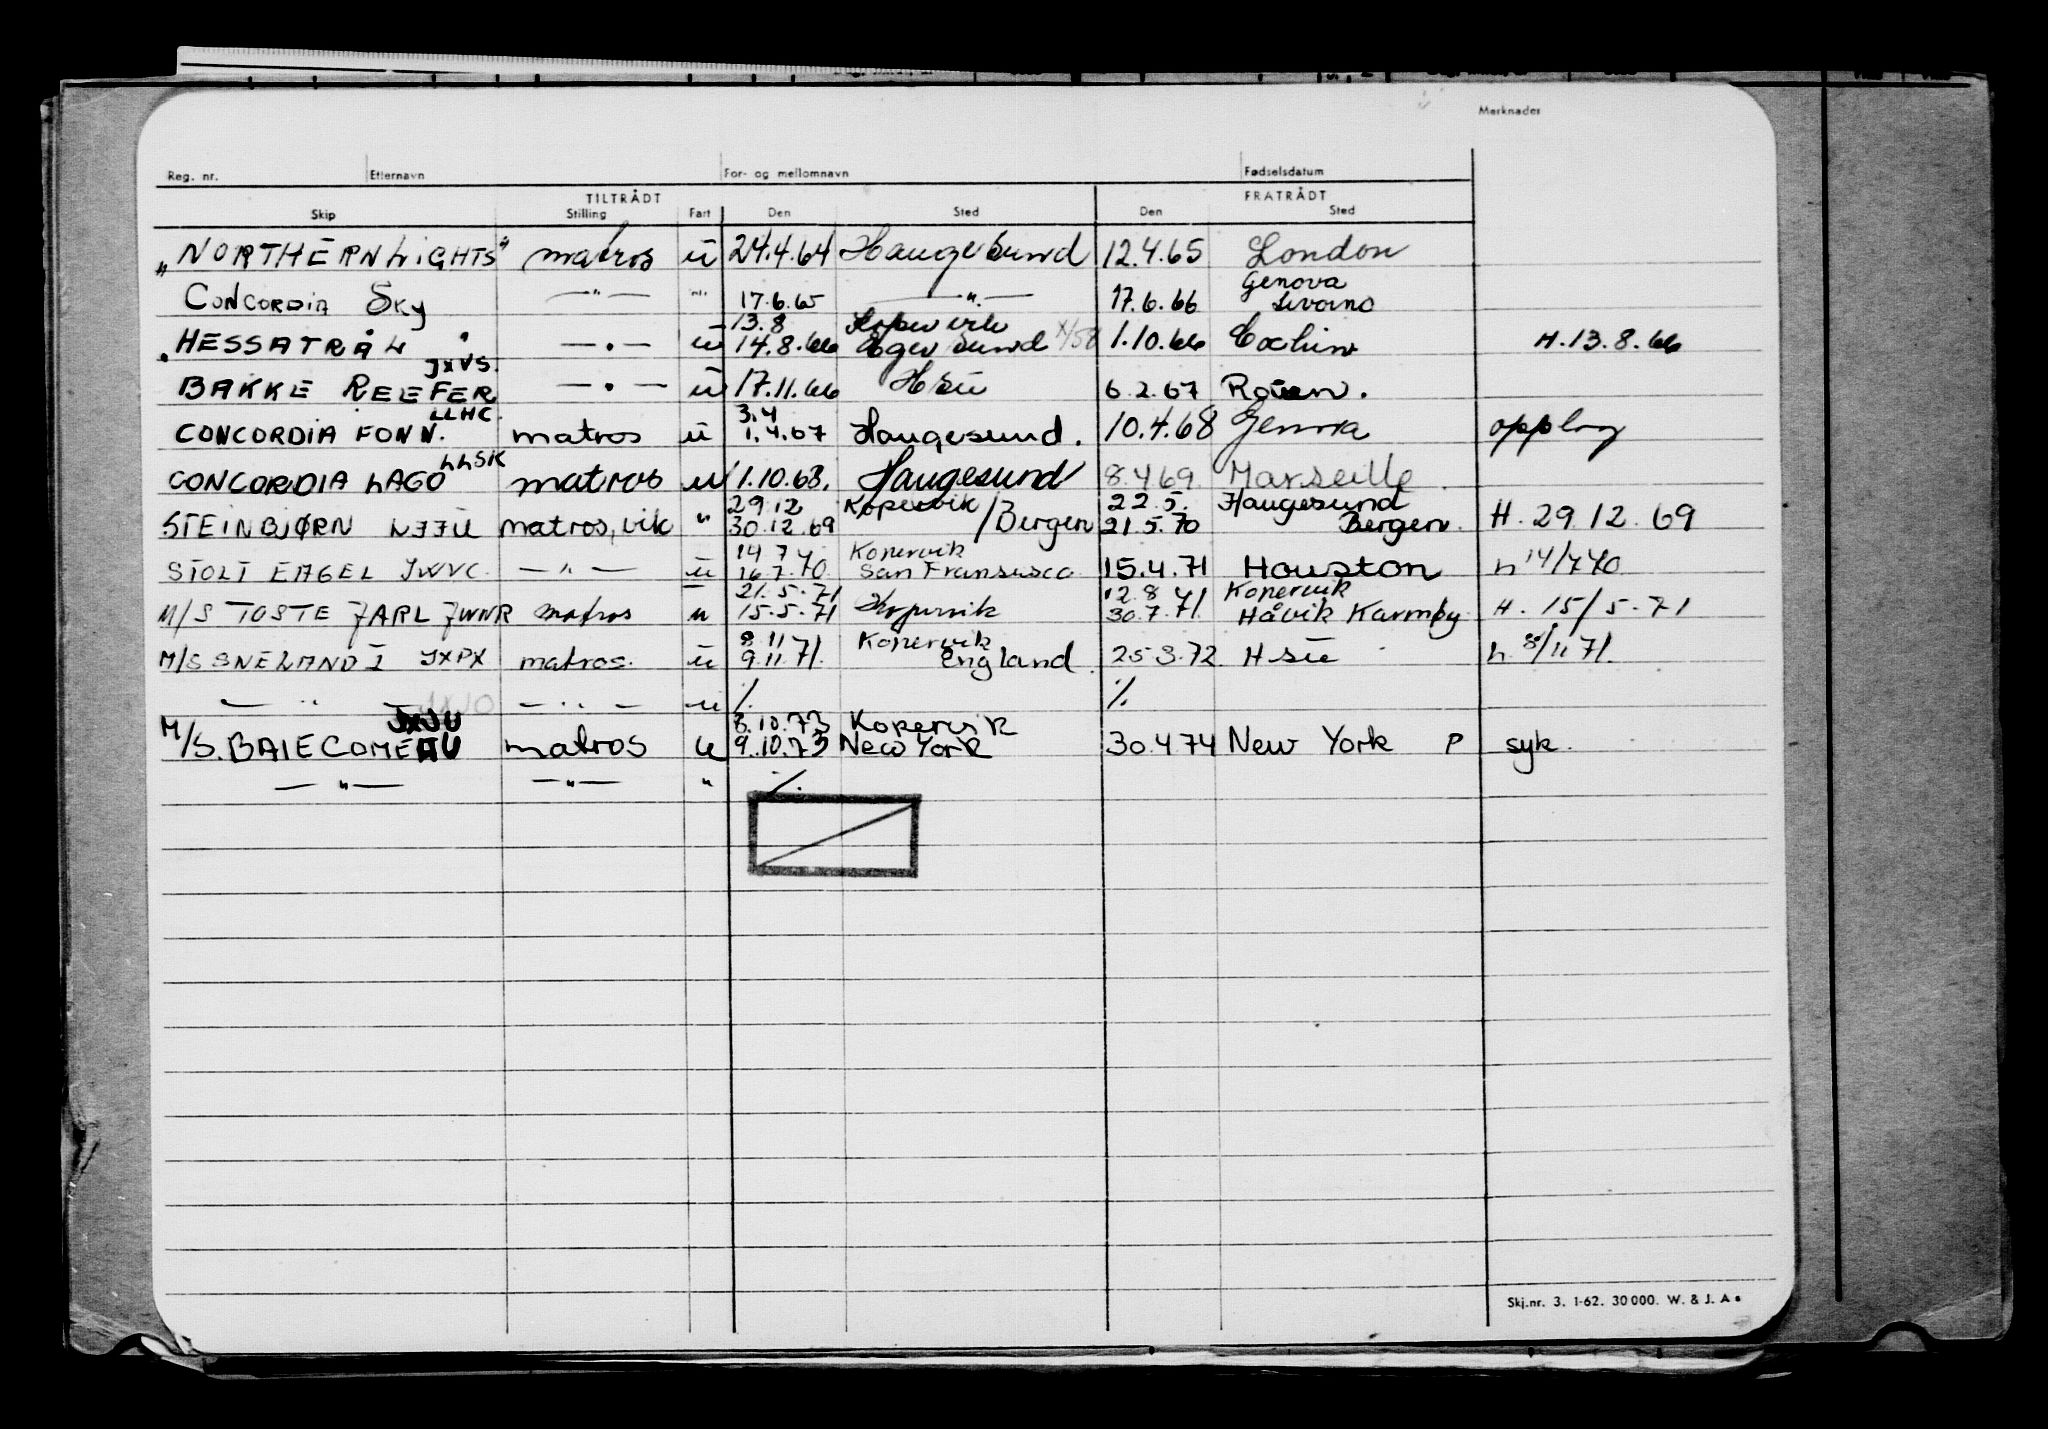 Merknader
Reg. nr. Etternavn For- og mellomnavn Fødselsdatum
TILTRÅDT FRATRÅDT
Skip Stilling Fart Den Sted Den Sted
„NORTHERN LIGHTS" matros ü 24.4.64 Haugesund 12.4.65 London
Genova
CONCORDIA SKy —"— "" 17.6.65 —"— 17.6.66 Livorno
13.8 Kopervik
"HESSATRÅL" —"— ü 14.8.66 Egersund 1.10.66 Cochin H.13.8.66
JXVS.
BAKKE REEFER —"— ü 17.11.66 Hsu 6.2.67 Rouen.
LLHC. 3.4
CONCORDIA FONN. matros ü 1.4.67 Haugesund. 10.4.68 Genova opplag
LLSK
CONCORDIA LAGO matros u 1.10.68. Haugesund 8.4.69. Marseille.
29.12 Kopervik 22.5. Haugesund
STEINBJØRN LJJU matros, vik " 30.12.69 /Bergen 21.5.70 Bergen. H. 29.12.69
14 7 Kopervik
STOLT EAGEL JWVC. —"— ü 16.7.70. San Fransisco 15.4.71 Houston h 14/7 70
21.5.71 12.8.71 Kopervik
M/S TOSTE JARL JWNR matros u 15.5.71 Kopervik 30.7.71. Håvik Karmøy H. 15/5.71
8.11 Kopervik
M/S SNELAND I JXPX matros. ü 9.11.71. England. 25.3.72. Hsu h. 8/11 71.
—"— —"— u % %
JXJU 8.10.73 Kopervik
M/S. BAIECOMEAU matros u 9.10.73 New York 30.4.74 New York P syk.
—"— —"— " %
Skj.nr. 3. 1-62. 30 000. W. & J. A.